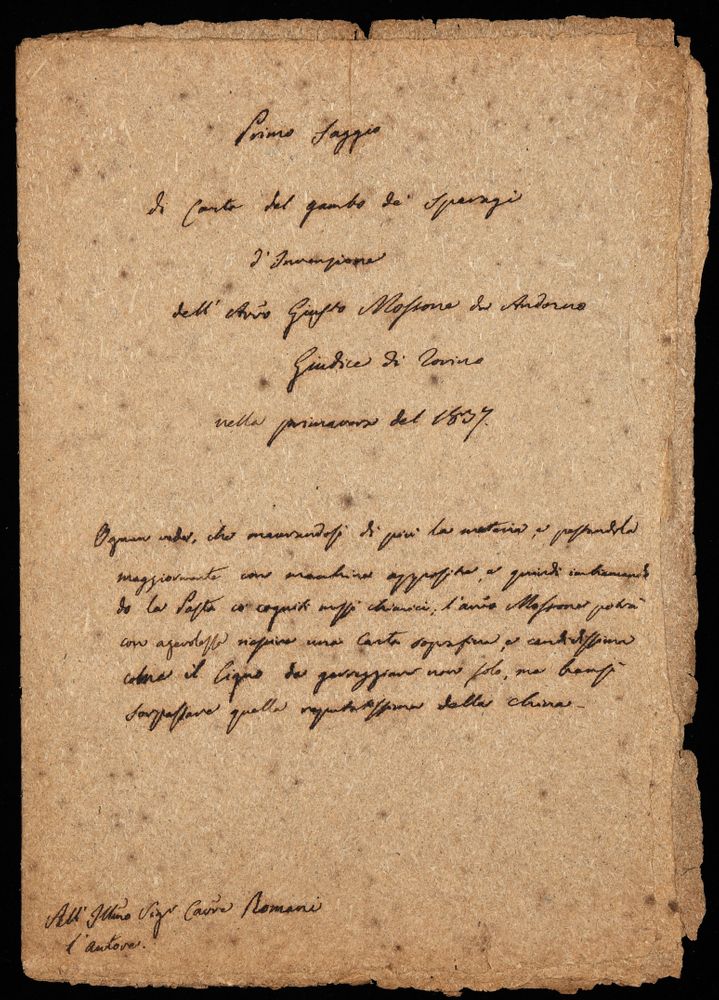 Primo Saggio
di Carta del gambo de' Sparagi
d'Invenzione
dell' Avvo Giusto Mossone da Andorno
Giudice di Torino
nella primavera del 1837.
Ognun vede, che macerandosi di più la materia, e pestandola
maggiormente con macchina apposita, e quindi imbiancan
do la Pasta co' cogniti mezzi chimici, l'avvo Mossone potrà
con agevolezza riuscire una Carta soprafina, e candidissima
come il Cigno da gareggiare non solo, ma bensì
sorpassare quella reputatissima della China.
All' Illmo Sigr Cavre Romani
l'autore.